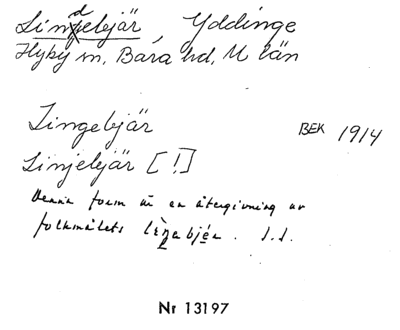 Lindebjär, Yddinge
Hyby sn, Bara hd, M län
Lingebjär BEK 1914
Linjebjär [!]
Denna form är en återgivning av
folkmålets
Nr 13197